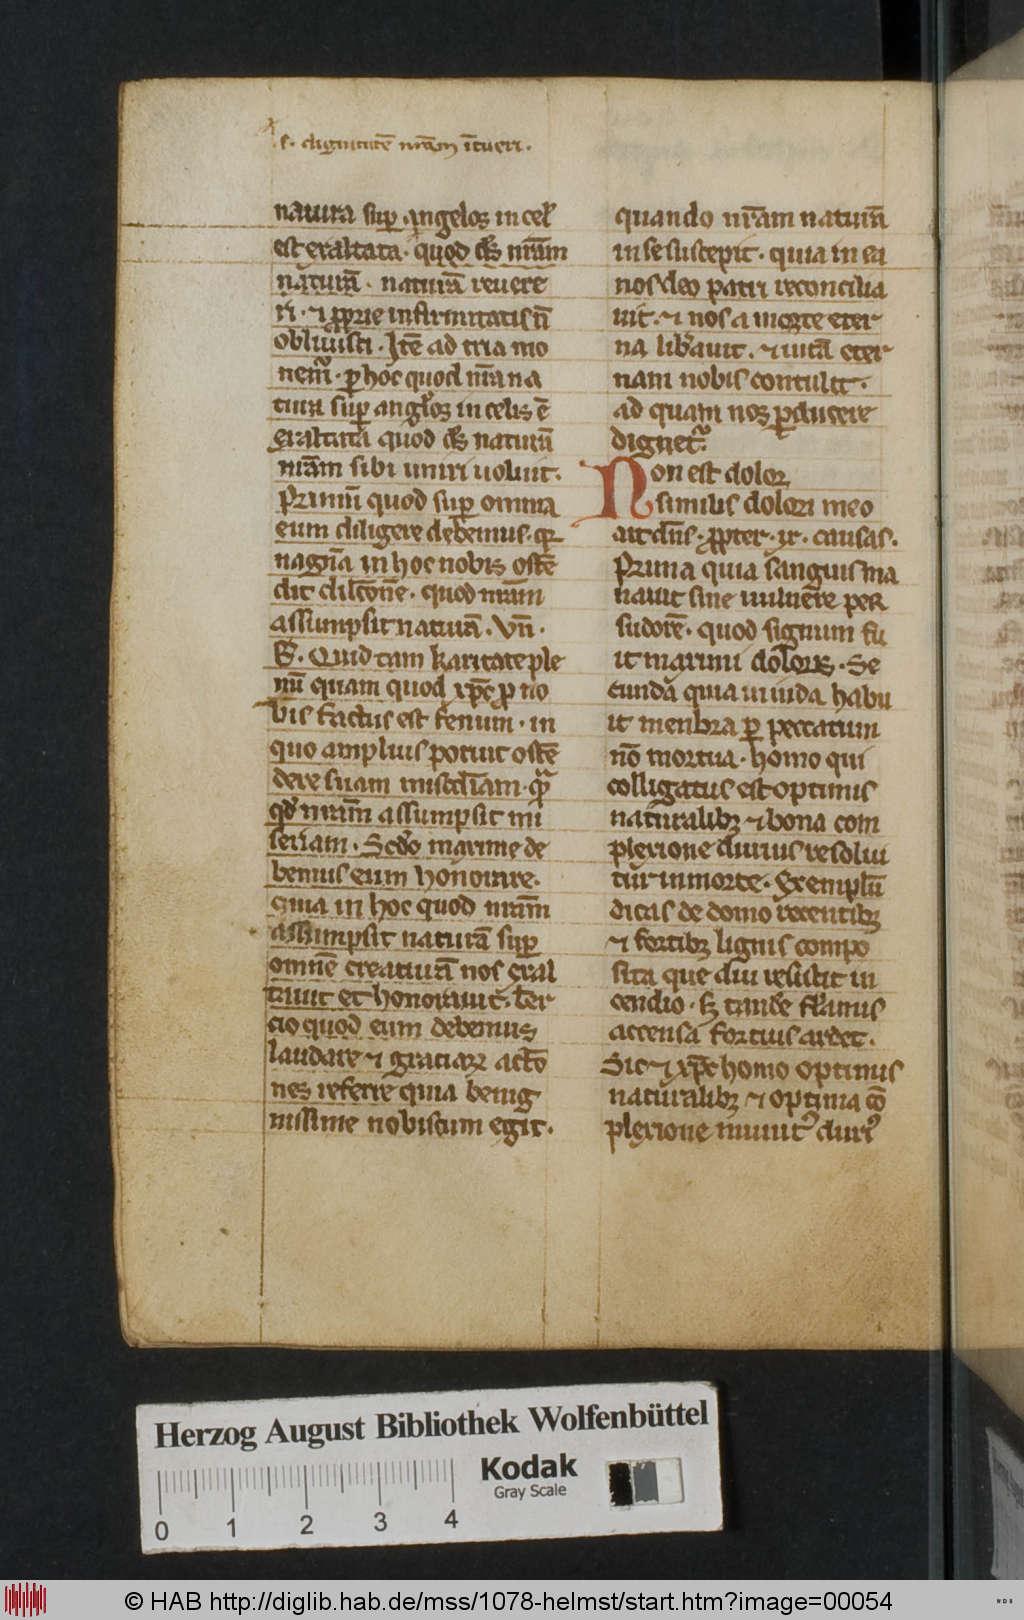 .s. dignitatē nr̄am ītueri.
natura sup angelos in cel'
est exaltata. quod ds̄ nr̄am
naturā. naturā reuere
ri. ⁊ p̱prie infirmitatis n̄
obliuisci. Itē ad tria mo
nem̄. p hoc quod nr̄a na
tura sup anglos in celis ē
exaltata quod ds̄ naturā
nr̄am sibi uniri uoluit.
Primū quod sup omnia
eum diligere debemus. qꝛ
nagnā in hoc nobis ostē
dit dilcōnē. quod nr̄am
assumpsit naturā. Vn̄.
Quid tam karitate ple
nū quam quod xp̄c p no
bis factus est fenum. in
quo amplius potuit ostē
dere suam misc̄diam.
qd' nr̄am assumpsit mi
seriam. Scd'o maxime de
bemus eum honorare.
quia in hoc quod nr̄am
assumpsit naturā sup
omnē creaturā nos exal
tauit et honorauit. Ter
cio quod eum debemus
laudare ⁊ graciaꝝ actō
nes referre quia benig
nissime nobiscum egit.
quando nr̄am naturā
in se suscepit. quia in ea
nos deo patri reconcilia
uit. ⁊ nos a morte eter
na libauit. ⁊ uitā eter
nam nobis contulit.
ad quam nos pducere
dignet̄.
Non est dolor
similis dolori meo
ait dn̄s. p̱pter. causas.
Prima quia sanguis ma
nauit sine uulnere per
sudorē. quod signum fu
it maximi doloris. Se
cunda quia uiuida habu
it menbra p peccatum
nō mortua. homo qui
colligatus est optimis
naturalibꝫ ⁊ bona com
plexione diutius resolui
tur in morte. Exemplū
dicas de domo recentibꝫ
⁊ fortibꝫ lignis compo
sita que diu resistit in
cendio. sꝫ tandē flāmis
accensa fortius ardet.
Sic ⁊ xp̄c homo optimis
naturalibꝫ ⁊ optima cō
plexione
Herzog August Bibliothek Wolfenbüttel
Kodak
Gray Scale
0 1 2 3 4
© HAB http://diglib.hab.de/mss/1078-helmst/start.htm?image=00054